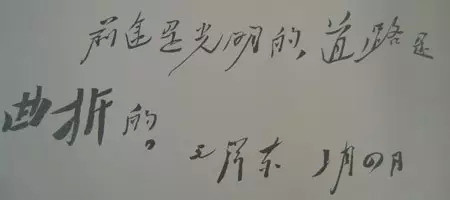 前途是光明的,道路是
曲折的。
毛泽东 1月四日